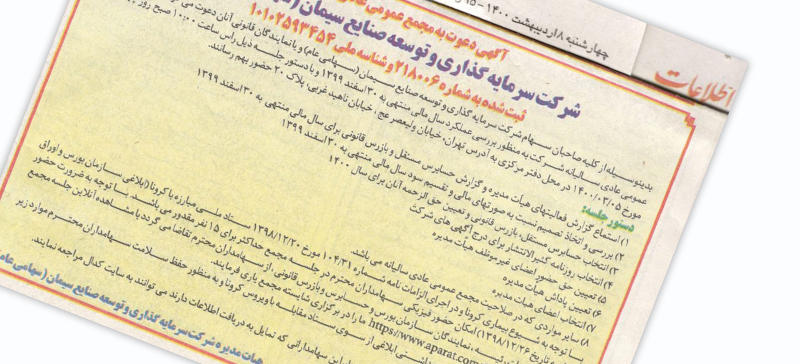 اطلاعات
چهارشنبه ۸ اردیبهشت ۱۴۰۰ - ۱۵
آگهی دعوت به مجمع عمومی عادی
شرکت سرمایه گذاری و توسعه صنایع سیمان (
ثبت شده به شماره ۲۱۸۰۰۶ و شناسه ملی ۱۰۱۰۲۵۹۳۴۵۴
بدینوسیله از کلیه صاحبان سهام شرکت سرمایه گذاری و توسعه صنایع سیمان (سهامی عام) و یا نمایندگان قانونی آنان دعوت می
عمومی عادی سالیانه شرکت به منظور بررسی عملکرد سال مالی منتهی به ۳۰ اسفند ۱۳۹۹ و با دستور جلسه ذیل راس ساعت ۱۰:۰۰ صبح روز
مورخ ۱۴۰۰/۰۳/۰۵ در محل دفتر مرکزی به آدرس تهران، خیابان ولیعصر عج، خیابان ناهید غربی، پلاک ۲۰ حضور بهم رسانند.
دستور جلسه:
۱) استماع گزارش فعالیتهای هیأت مدیره و گزارش حسابرس مستقل و بازرس قانونی برای سال مالی منتهی به ۳۰ اسفند ۱۳۹۹
۲) بررسی و اتخاذ تصمیم نسبت به صورتهای مالی و تقسیم سود سال مالی منتهی به ۳۰ اسفند ۱۳۹۹
۳) انتخاب حسابرس مستقل، بازرس قانونی و تعیین حق الزحمه آنان برای سال ۱۴۰۰
۴) انتخاب روزنامه کثیرالانتشار برای درج آگهی های شرکت
۵) تعیین حق حضور اعضای غیرموظف هیأت مدیره
۶) تعیین پاداش هیأت مدیره
۷) انتخاب اعضای هیأت مدیره
۸) سایر مواردی که در صلاحیت مجمع عمومی عادی سالیانه می باشد.
با توجه به شیوع بیماری کرونا و در اجرای الزامات نامه شماره ۱۰۴/۳۱ مورخ ۱۳۹۸/۱۲/۲۰ ستاد ملی مبارزه با کرونا (ابلاغی سازمان بورس و اوراق
تاریخ ۱۳۹۸/۱۲/۲۶) امکان حضور فیزیکی سهامداران محترم در جلسه مجمع حداکثر برای ۱۵ نفر مقدور می باشد. با توجه به ضرورت حضور
رئیسه، نمایندگان سازمان بورس و حسابرس و بازرس قانونی، از سهامداران محترم تقاضا می گردد با مشاهده آنلاین جلسه مجمع
https://www.aparat.com ما را در برگزاری شایسته مجمع یاری فرمایند.
ابلاغی از سوی ستاد مقابله با ویروس کرونا و به منظور حفظ سلامت سهامداران محترم موارد زیر
این سهامدارانی که تمایل به دریافت اطلاعات دارند می توانند به سایت کدال مراجعه نمایند.
هیات مدیره شرکت سرمایه گذاری و توسعه صنایع سیمان (سهامی عام